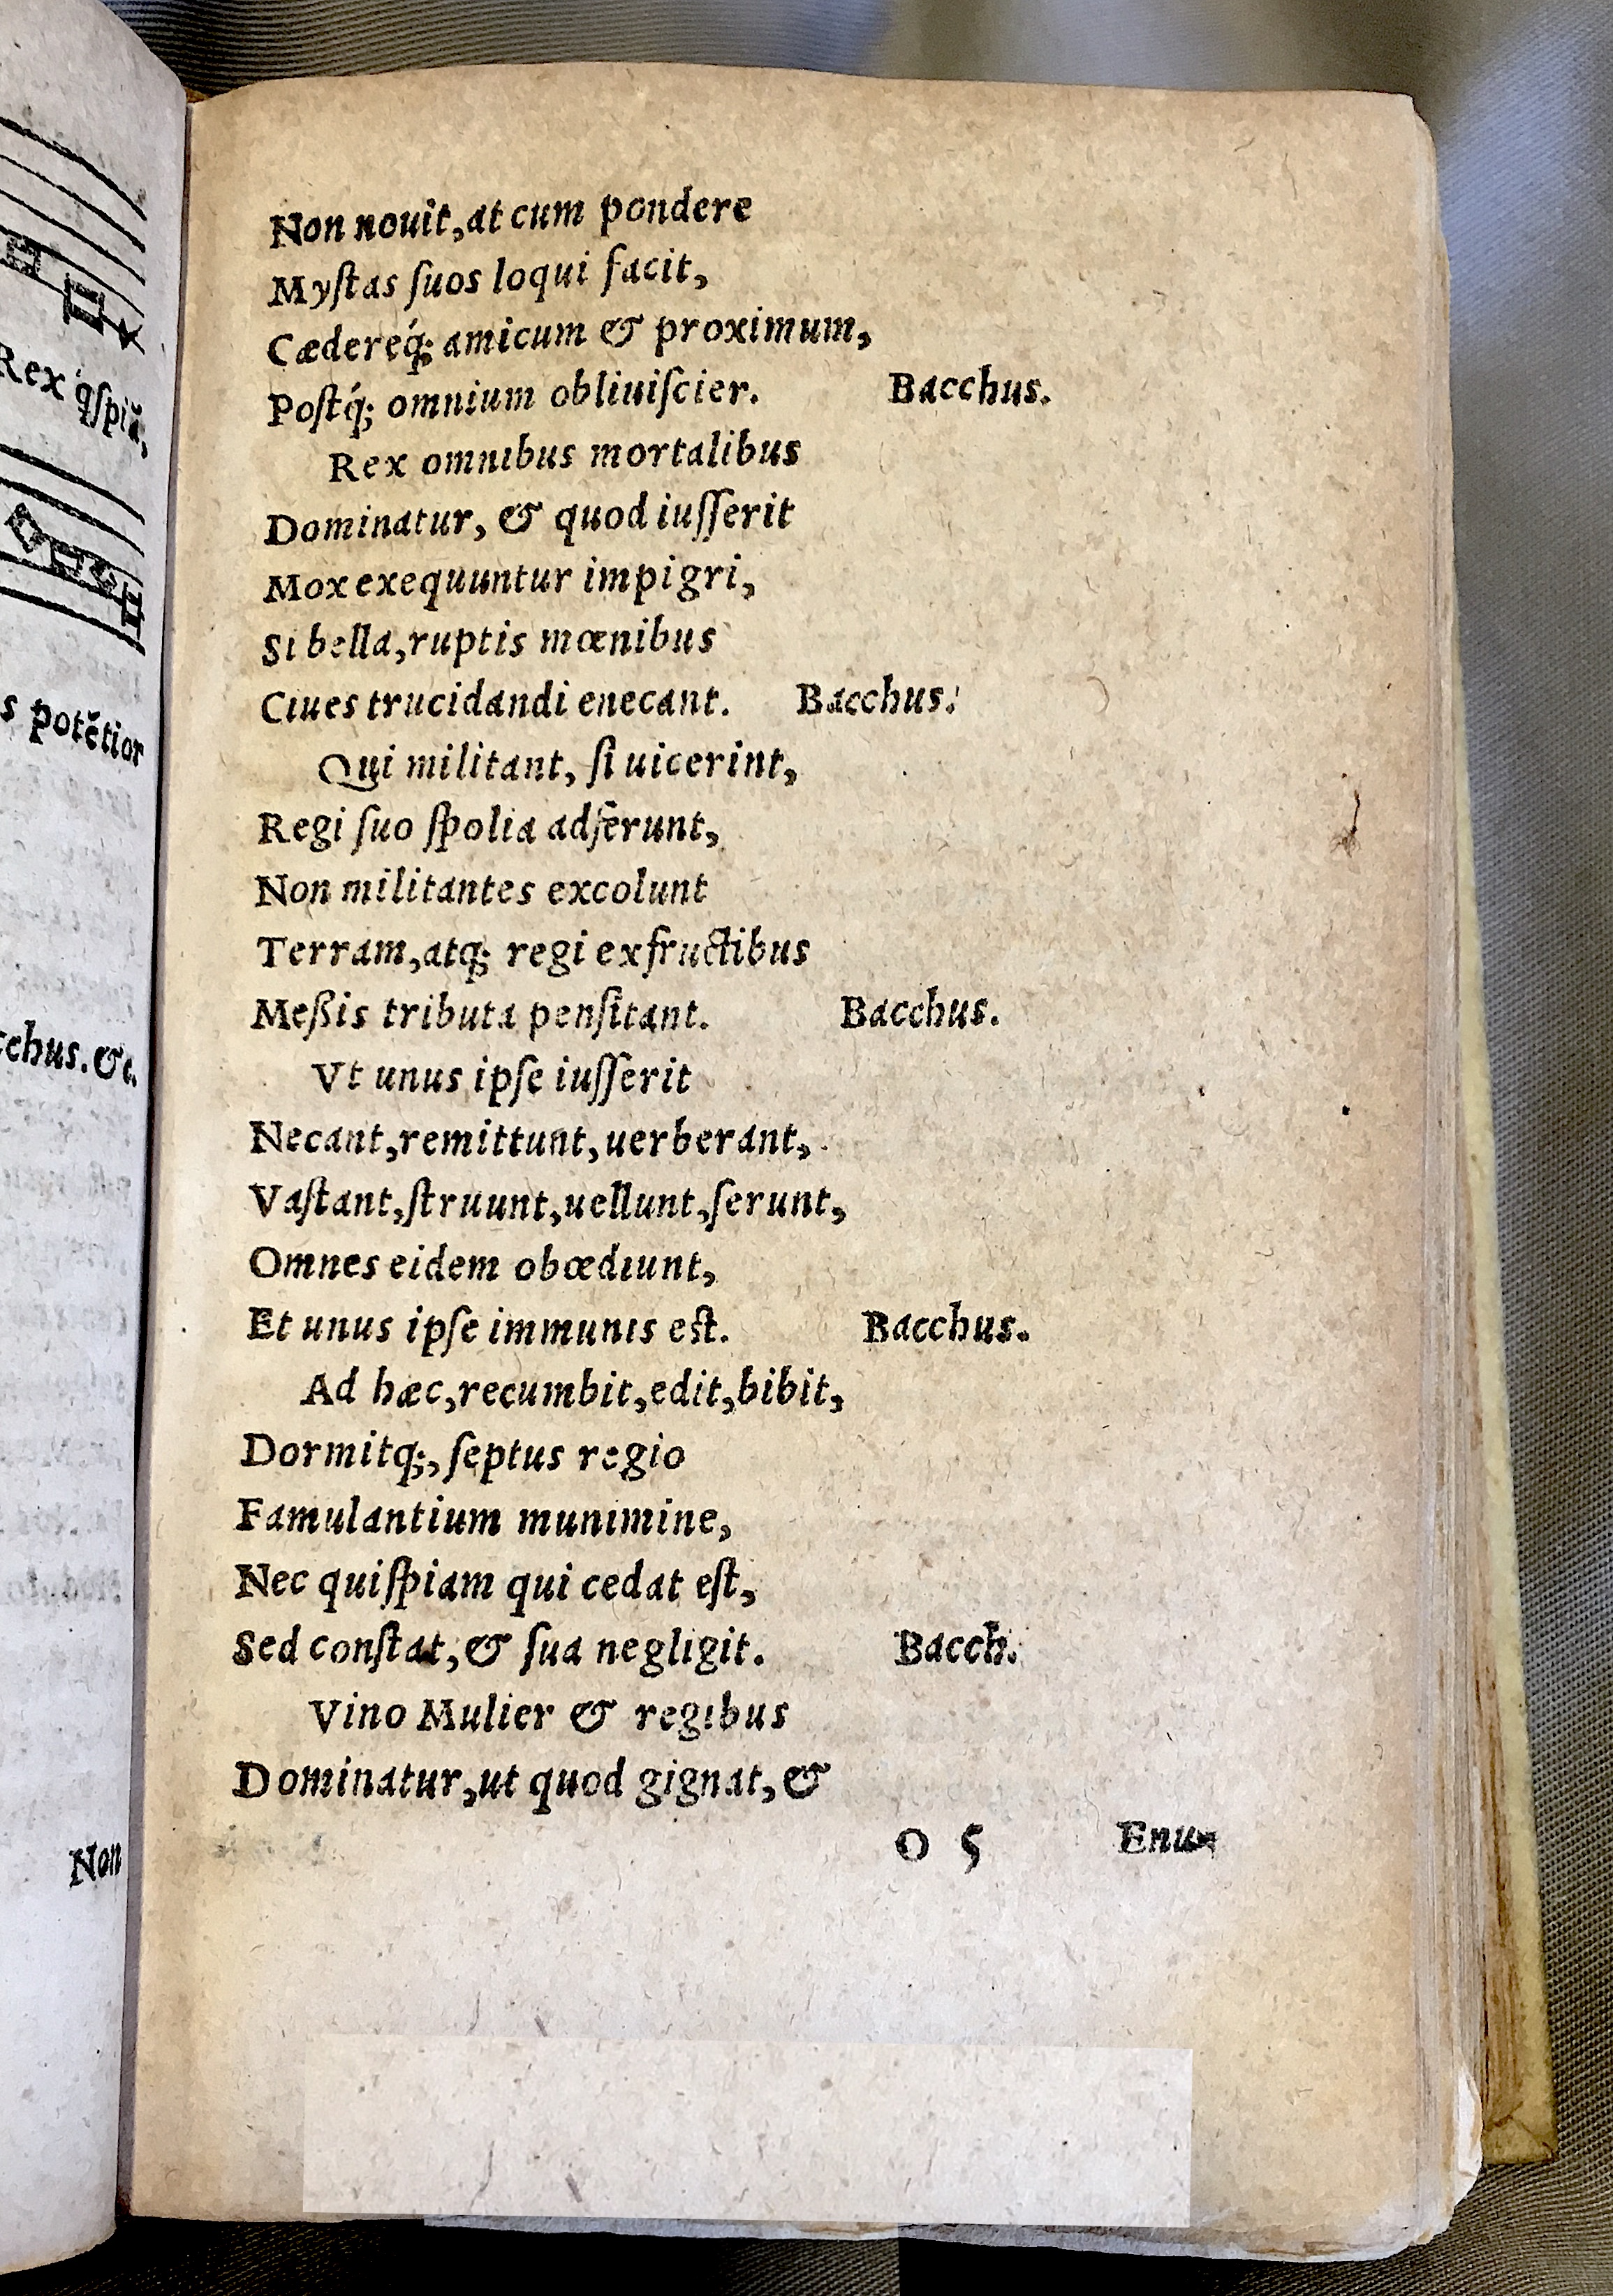 Rex q́spiã,
s potẽtior
cchus.&c.
Non
Non nouit,at cum pondere
Myſtas ſuos loqui facit,
Cædereq́; amicum & proximum,
Poſtq́; omnium obliuiſcier. Bacchus.
Rex omnibus mortalibus
Dominatur, & quod iuſſerit
Mox exequuntur impigri,
Si bella,ruptis mœnibus
Ciues trucidandi enecant. Bacchus.
Qui militant, ſi uicerint,
Regi ſuo ſpolia adferunt,
Non militantes excolunt
Terram,atq; regi ex fructibus
Meßis tributa penſitant. Bacchus.
Vt unus ipſe iuſſerit
Necant,remittunt,uerberant,
Vaſtant,ſtruunt,uellunt,ſerunt,
Omnes eidem obœdiunt,
Et unus ipſe immunis eſt. Bacchus.
Ad hæc,recumbit,edit,bibit,
Dormitq;,ſeptus regio
Famulantium munimine,
Nec quiſpiam qui cedat eſt,
Sed conſtat,& ſua negligit. Bacch.
Vino Mulier & regibus
Dominatur,ut quod gignat,&
O 5 Enu-